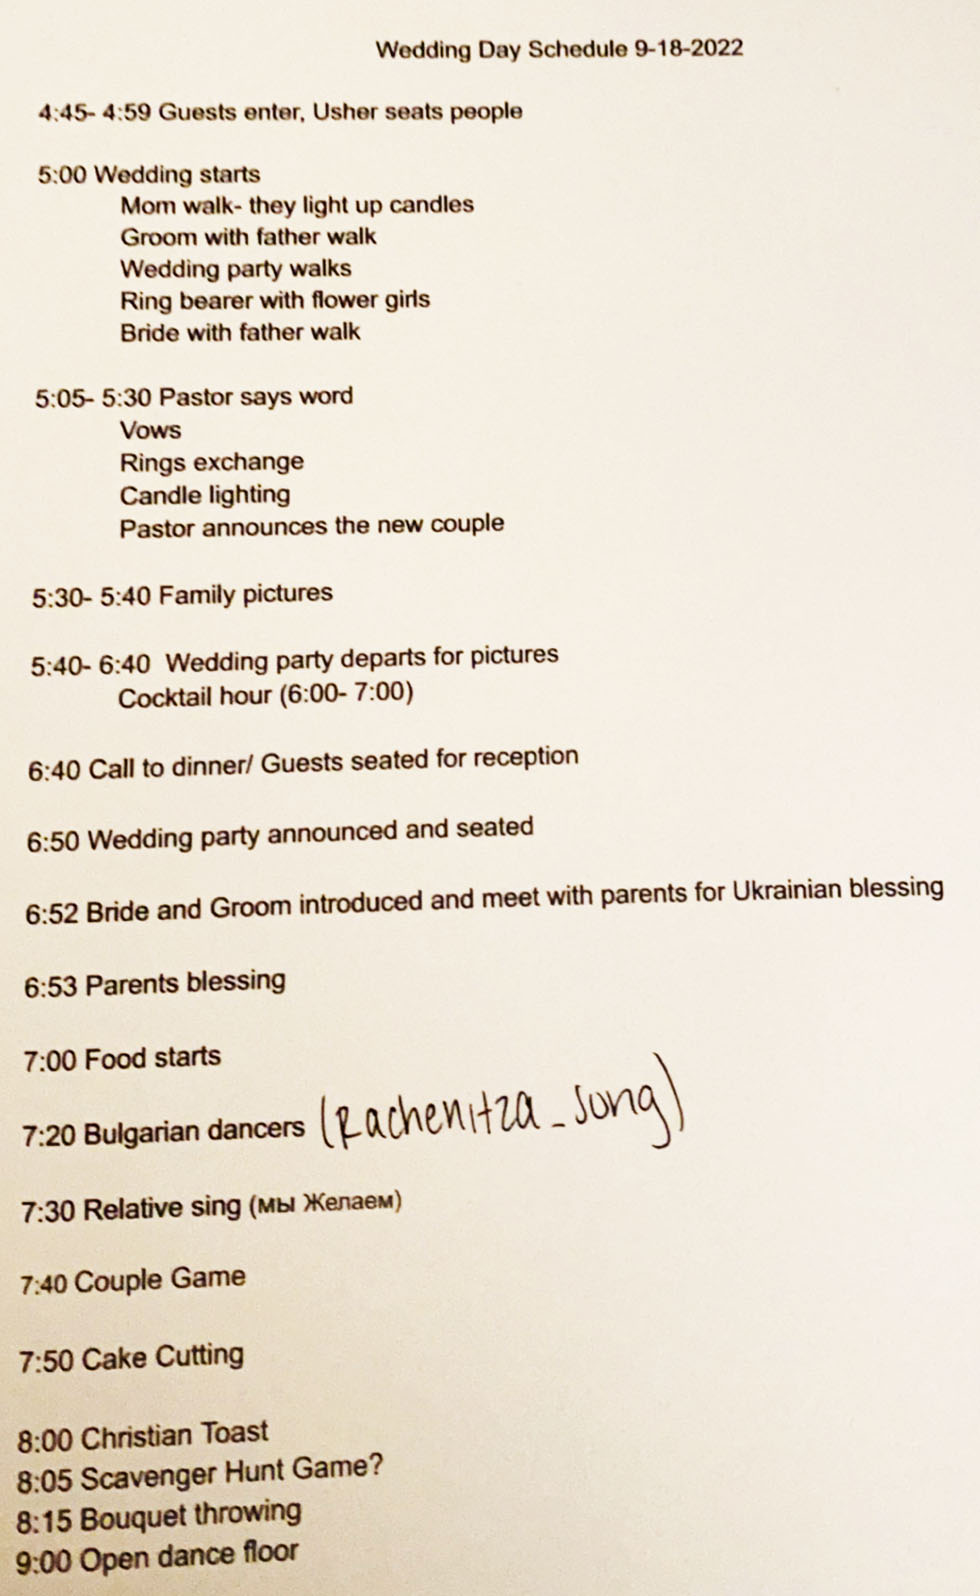 Wedding Day Schedule 9-18-2022
4:45- 4:59 Guests enter, Usher seats people
5:00 Wedding starts
Mom walk- they light up candles
Groom with father walk
Wedding party walks
Ring bearer with flower girls
Bride with father walk
5:05- 5:30 Pastor says word
Vows
Rings exchange
Candle lighting
Pastor announces the new couple
5:30- 5:40 Family pictures
5:40- 6:40 Wedding party departs for pictures
Cocktail hour (6:00- 7:00)
6:40 Call to dinner/ Guests seated for reception
6:50 Wedding party announced and seated
6:52 Bride and Groom introduced and meet with parents for Ukrainian blessing
6:53 Parents blessing
7:00 Food starts
7:20 Bulgarian dancers (Rachenitza_song)
7:30 Relative sing (мы Желаем)
7:40 Couple Game
7:50 Cake Cutting
8:00 Christian Toast
8:05 Scavenger Hunt Game?
8:15 Bouquet throwing
9:00 Open dance floor